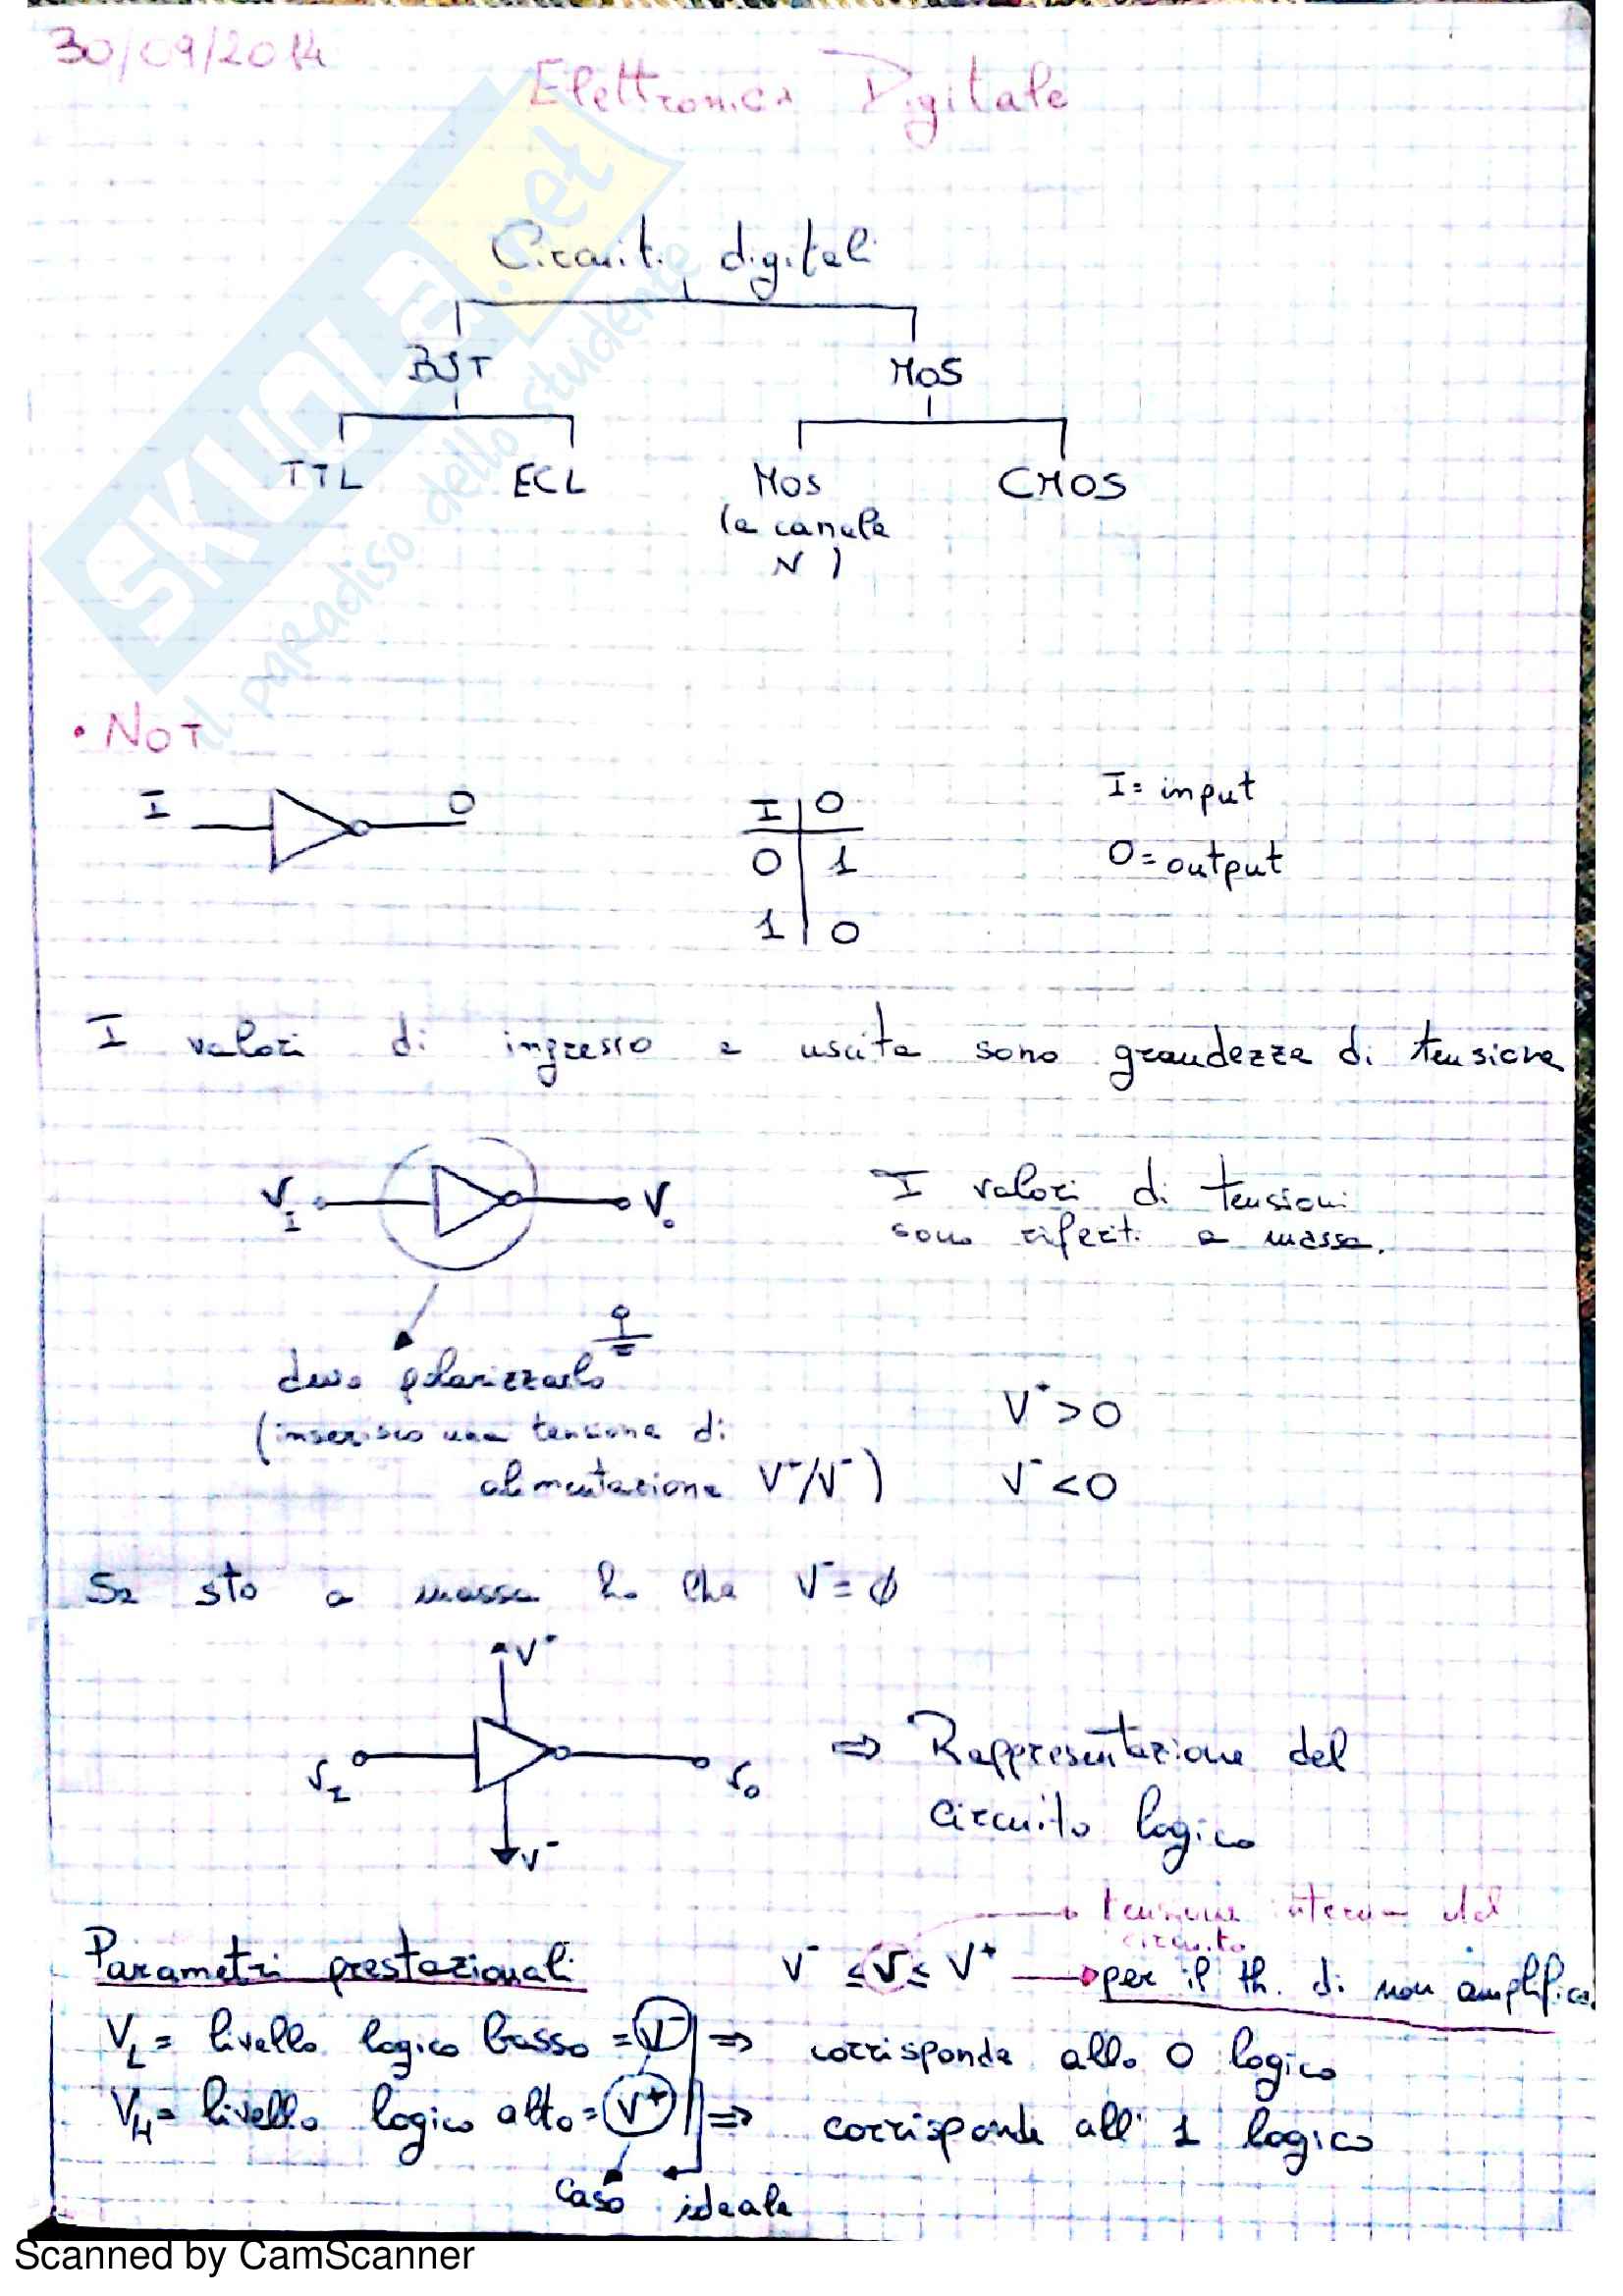 30/09/2014
Elettronica Digitale
SKUOLA.net
il paradiso dello studente
Circuiti digitali
BJT MOS
TTL ECL MOS CMOS
(a canale
N)
• NOT
I O
I O
0 1
1 0
I = input
O = output
I valori di ingresso e uscita sono grandezze di tensione
VI Vo
I valori di tensioni
sono riferiti a massa.
devo polarizzarlo
(inserisco una tensione di
alimentazione V+/V-)
V+ > 0
V- < 0
Se sto a massa ho che V- = ∅
V+
VI Vo
V-
⇒ Rappresentazione del
circuito logico
Parametri prestazionali
V- ≤ V ≤ V+
tensione interna del
circuito
per il th. di non amplifica.
VL = livello logico basso = V- ⇒ corrisponde allo 0 logico
VH = livello logico alto = V+ ⇒ corrisponde all' 1 logico
caso ideale
Scanned by CamScanner